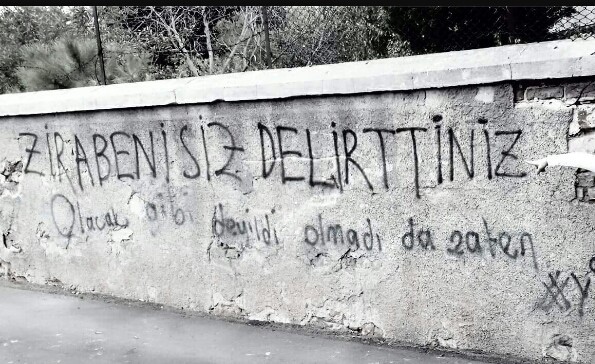 ZİRA BENİ SİZ DELİRTTİNİZ
Olacak gibi deyildi olmadı da zaten